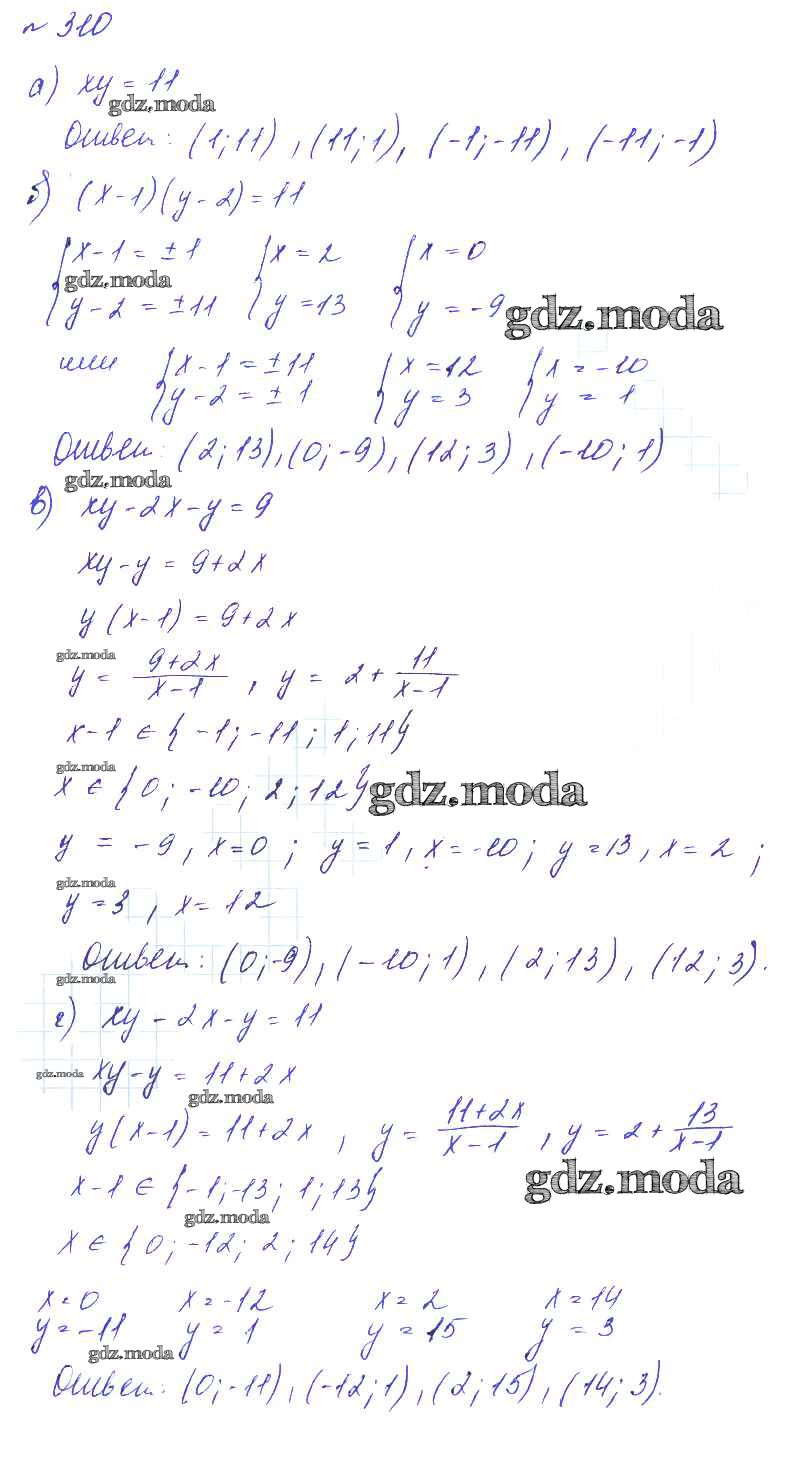 № 310
а) xy = 11
gdz.moda
Ответ: (1; 11), (11; 1), (-1; -11), (-11; -1)
б) (x-1)(y-2) = 11
{ x-1 = ±1 { x = 2 { x = 0
gdz.moda
y-2 = ±11 y = 13 y = -9 gdz.moda
или { x-1 = ±11 { x = 12 { x = -10
y-2 = ±1 y = 3 y = 1
Ответ: (2; 13), (0; -9), (12; 3), (-10; 1)
gdz.moda
в) xy - 2x - y = 9
xy - y = 9+2x
y(x-1) = 9+2x
gdz.moda
y = (9+2x)/(x-1), y = 2 + 11/(x-1)
x-1 ∈ {-1; -11; 1; 11}
gdz.moda
x ∈ {0; -10; 2; 12} gdz.moda
y = -9, x=0; y=1, x=-10; y=13, x=2;
gdz.moda
y=3, x=12
Ответ: (0; -9), (-10; 1), (2; 13), (12; 3).
gdz.moda
г) xy - 2x - y = 11
gdz.moda xy - y = 11+2x
gdz.moda
y(x-1) = 11+2x, y = (11+2x)/(x-1), y = 2 + 13/(x-1)
gdz.moda
x-1 ∈ {-1; -13; 1; 13}
gdz.moda
x ∈ {0; -12; 2; 14}
x=0 x=-12 x=2 x=14
y=-11 y=1 y=15 y=3
gdz.moda
Ответ: (0; -11), (-12; 1), (2; 15), (14; 3).